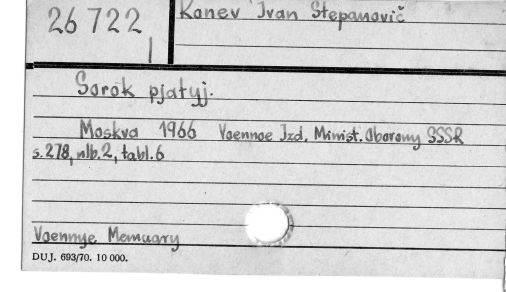 26 722
Konev Ivan Stepanovič
Sorok pjatyj.
Moskva 1966 Voennoe Izd. Minist. Oborony SSSR
s. 278, nlb. 2, tabl. 6
Voennye Memuary
DUJ. 693/70. 10 000.